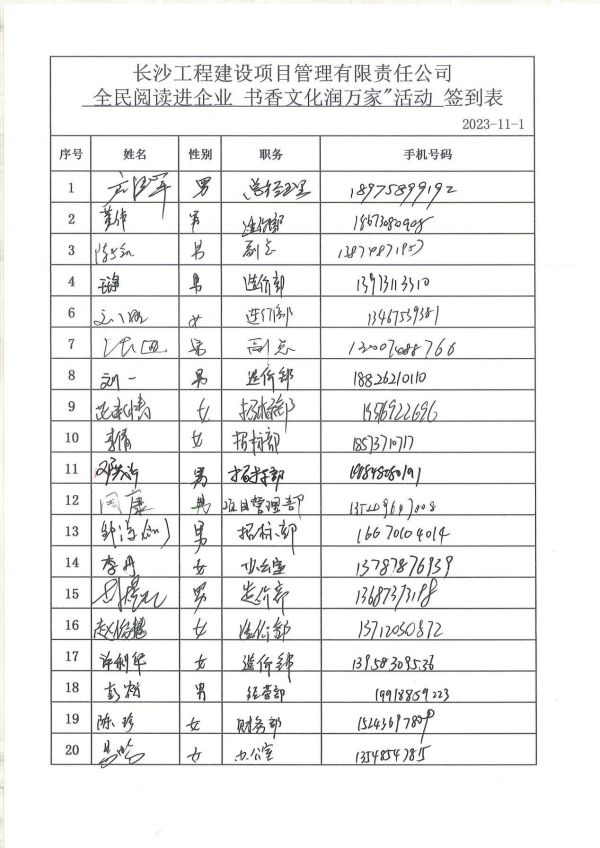 长沙工程建设项目管理有限责任公司
全民阅读进企业 书香文化润万家"活动 签到表
2023-11-1
序号 姓名 性别 职务 手机号码
1 男 总经理 18975899192
2 黄伟 男 造价部 18673080908
3 男 副总
4 男 造价部 13973113310
6 女 造价部 13467539381
7 男 副总
8 刘一 男 造价部 18826210110
9 女 招标部
10 李倩 女 招标部
11 男 招标部
12 周康 男 项目管理部
13 男 招标部 16670104014
14 李丹 女 办公室 13787876939
15 男 造价部
16 女 造价部 13712050872
17 许利华 女 造价部 13958309536
18 男 经营部 19918859223
19 陈珍 女 财务部
20 女 办公室 13548547815